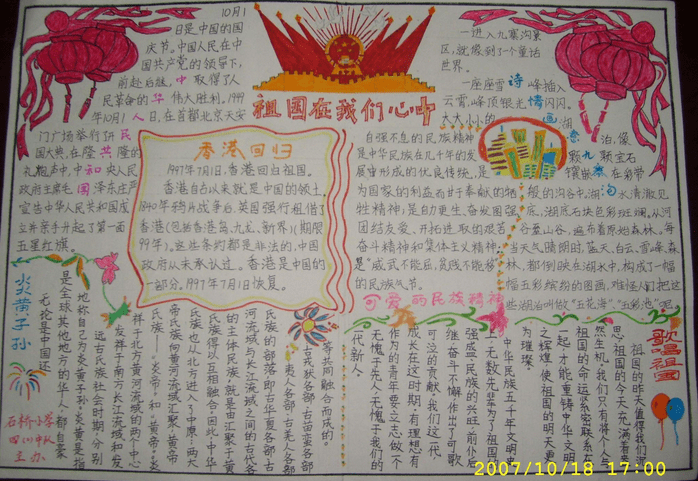 10月1
日是中国的国
庆节。中国人民在中
国共产党的领导下,
前赴后继,中取得了人
民革命的华伟大胜利。1949
年10月1人日,在首都北京天安
门广场举行讲民
国大典,在隆共隆的
礼炮声中,中和央人民
政府主席毛国泽东庄严
宣告中华人民共和国成
立并亲手升起了第一面
五星红旗。
祖国在我们心中
一进入九寨沟景
区,就像到了一个童话
世界。
一座座雪诗峰插入
云霄,峰顶银光情闪闪。
大大小小的画湖
泊,像
颗宝石
镶嵌在彩带
般的沟谷中。湖沟水清澈见
底,湖底石块色彩斑斓。从河
谷至山谷,遍布着原始森林。每
当天气晴朗时,蓝天、白云、雪峰、森
林,都倒映在湖水中,构成了一幅
幅五彩缤纷的图画,难怪人们把这
些湖泊叫做“五花海”、“五彩池”呢
香港回归
1997年7月1日,香港回归祖国。
香港自古以来就是中国的领土,
1840年鸦片战争后,英国强行租借了
香港(包括香港岛、九龙、新界)(期限
99年)。这些条约都是非法的,中国
政府从未承认过。香港是中国的
一部分,1997年7月1日恢复。
自强不息的民族精神
是中华民族在几千年的发
展当形成的优良传统,是
为国家的利益而甘于奉献的牺
牲精神;是自力更生、奋发图强
团结友爱、开拓进取的艰苦
奋斗精神和集体主义精神;
是“威武不能屈,贫贱不能移”
的民族气节。
可爱的民族精神
炎黄子孙
无论是中国还
是全球其他地方的华人,都自豪
地称自己为“炎黄子孙”。炎黄是指
远古氏族社会时期,分别
发祥于南方长江流域和发
祥于北方黄河流域的两个中心
氏族——“炎帝”和“黄帝”。炎
帝氏族向黄河流域汇聚,黄帝
氏族也从北方进入了中原,两大
氏族得以互相融合。因此中华
的主体民族,就是由汇聚于黄
河流域与长江流域之间的古代各
民族的部落,即古华夏各部、古
夷人各部、古苗蛮各部、古羌人各部
古吴狄各部
等共同融合而成。
歌唱祖国
祖国的昨天值得我们深
思,祖国的今天充满着勃
然生机,我们只有将个人与
祖国的命运紧密联系在
一起,才能重铸中华文明
之辉煌,使祖国的明天更
为璀璨。
中华民族五千年文明史
上,无数先辈为了祖国的
强盛、民族的兴旺,前仆后
继,奋斗不懈,作出了可歌
可泣的贡献。我们这一代,
成长在这时期,有理想有
作为的青年要立志做个
无愧于先人,无愧于我们的
一代新人。
石桥小学
四(1)中队
主办
2007/10/18 17:00